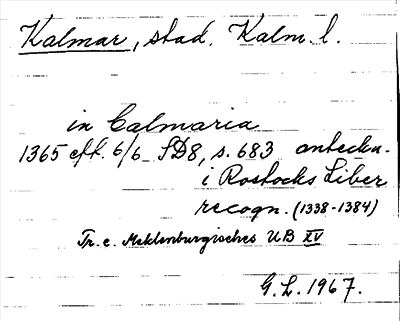 Kalmar, stad. Kalm. l.
in Calmaria
1365 eft. 6/6 SD8, s. 683 anteckn.
i Rostocks Liber
recogn. (1338-1384)
Tr. e. Meklenburgisches UB XV
G. L. 1967.